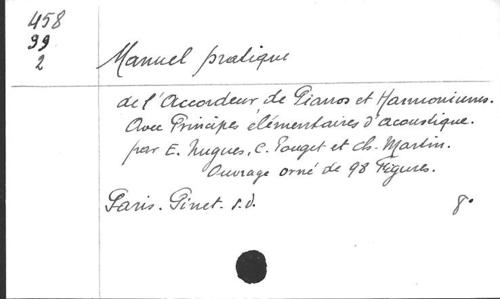 458
99
2
Manuel pratique
de l'Accordeur de Pianos et Harmoniums.
Avec Principes élémentaires d'acoustique.
par E. Nugues, C. Pouget et Ch. Martin.
Ouvrage orné de 98 Figures.
Paris. Pinet. s.d. 8°